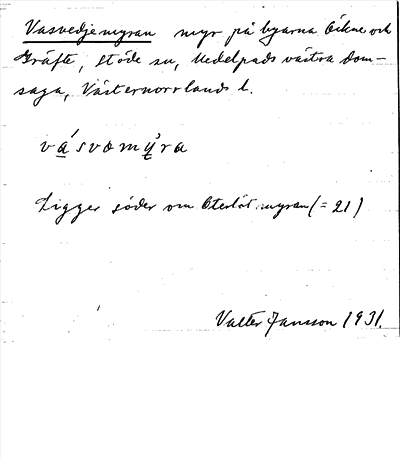 Vasvedjemyran myr på byarna Ökne och
Gräfte, Stöde sn, Medelpads västra dom-
saga, Västernorrlands l.
vásvæmýra
Ligger söder om Öterlåt myran (= 21)
Valter Jansson 1931.